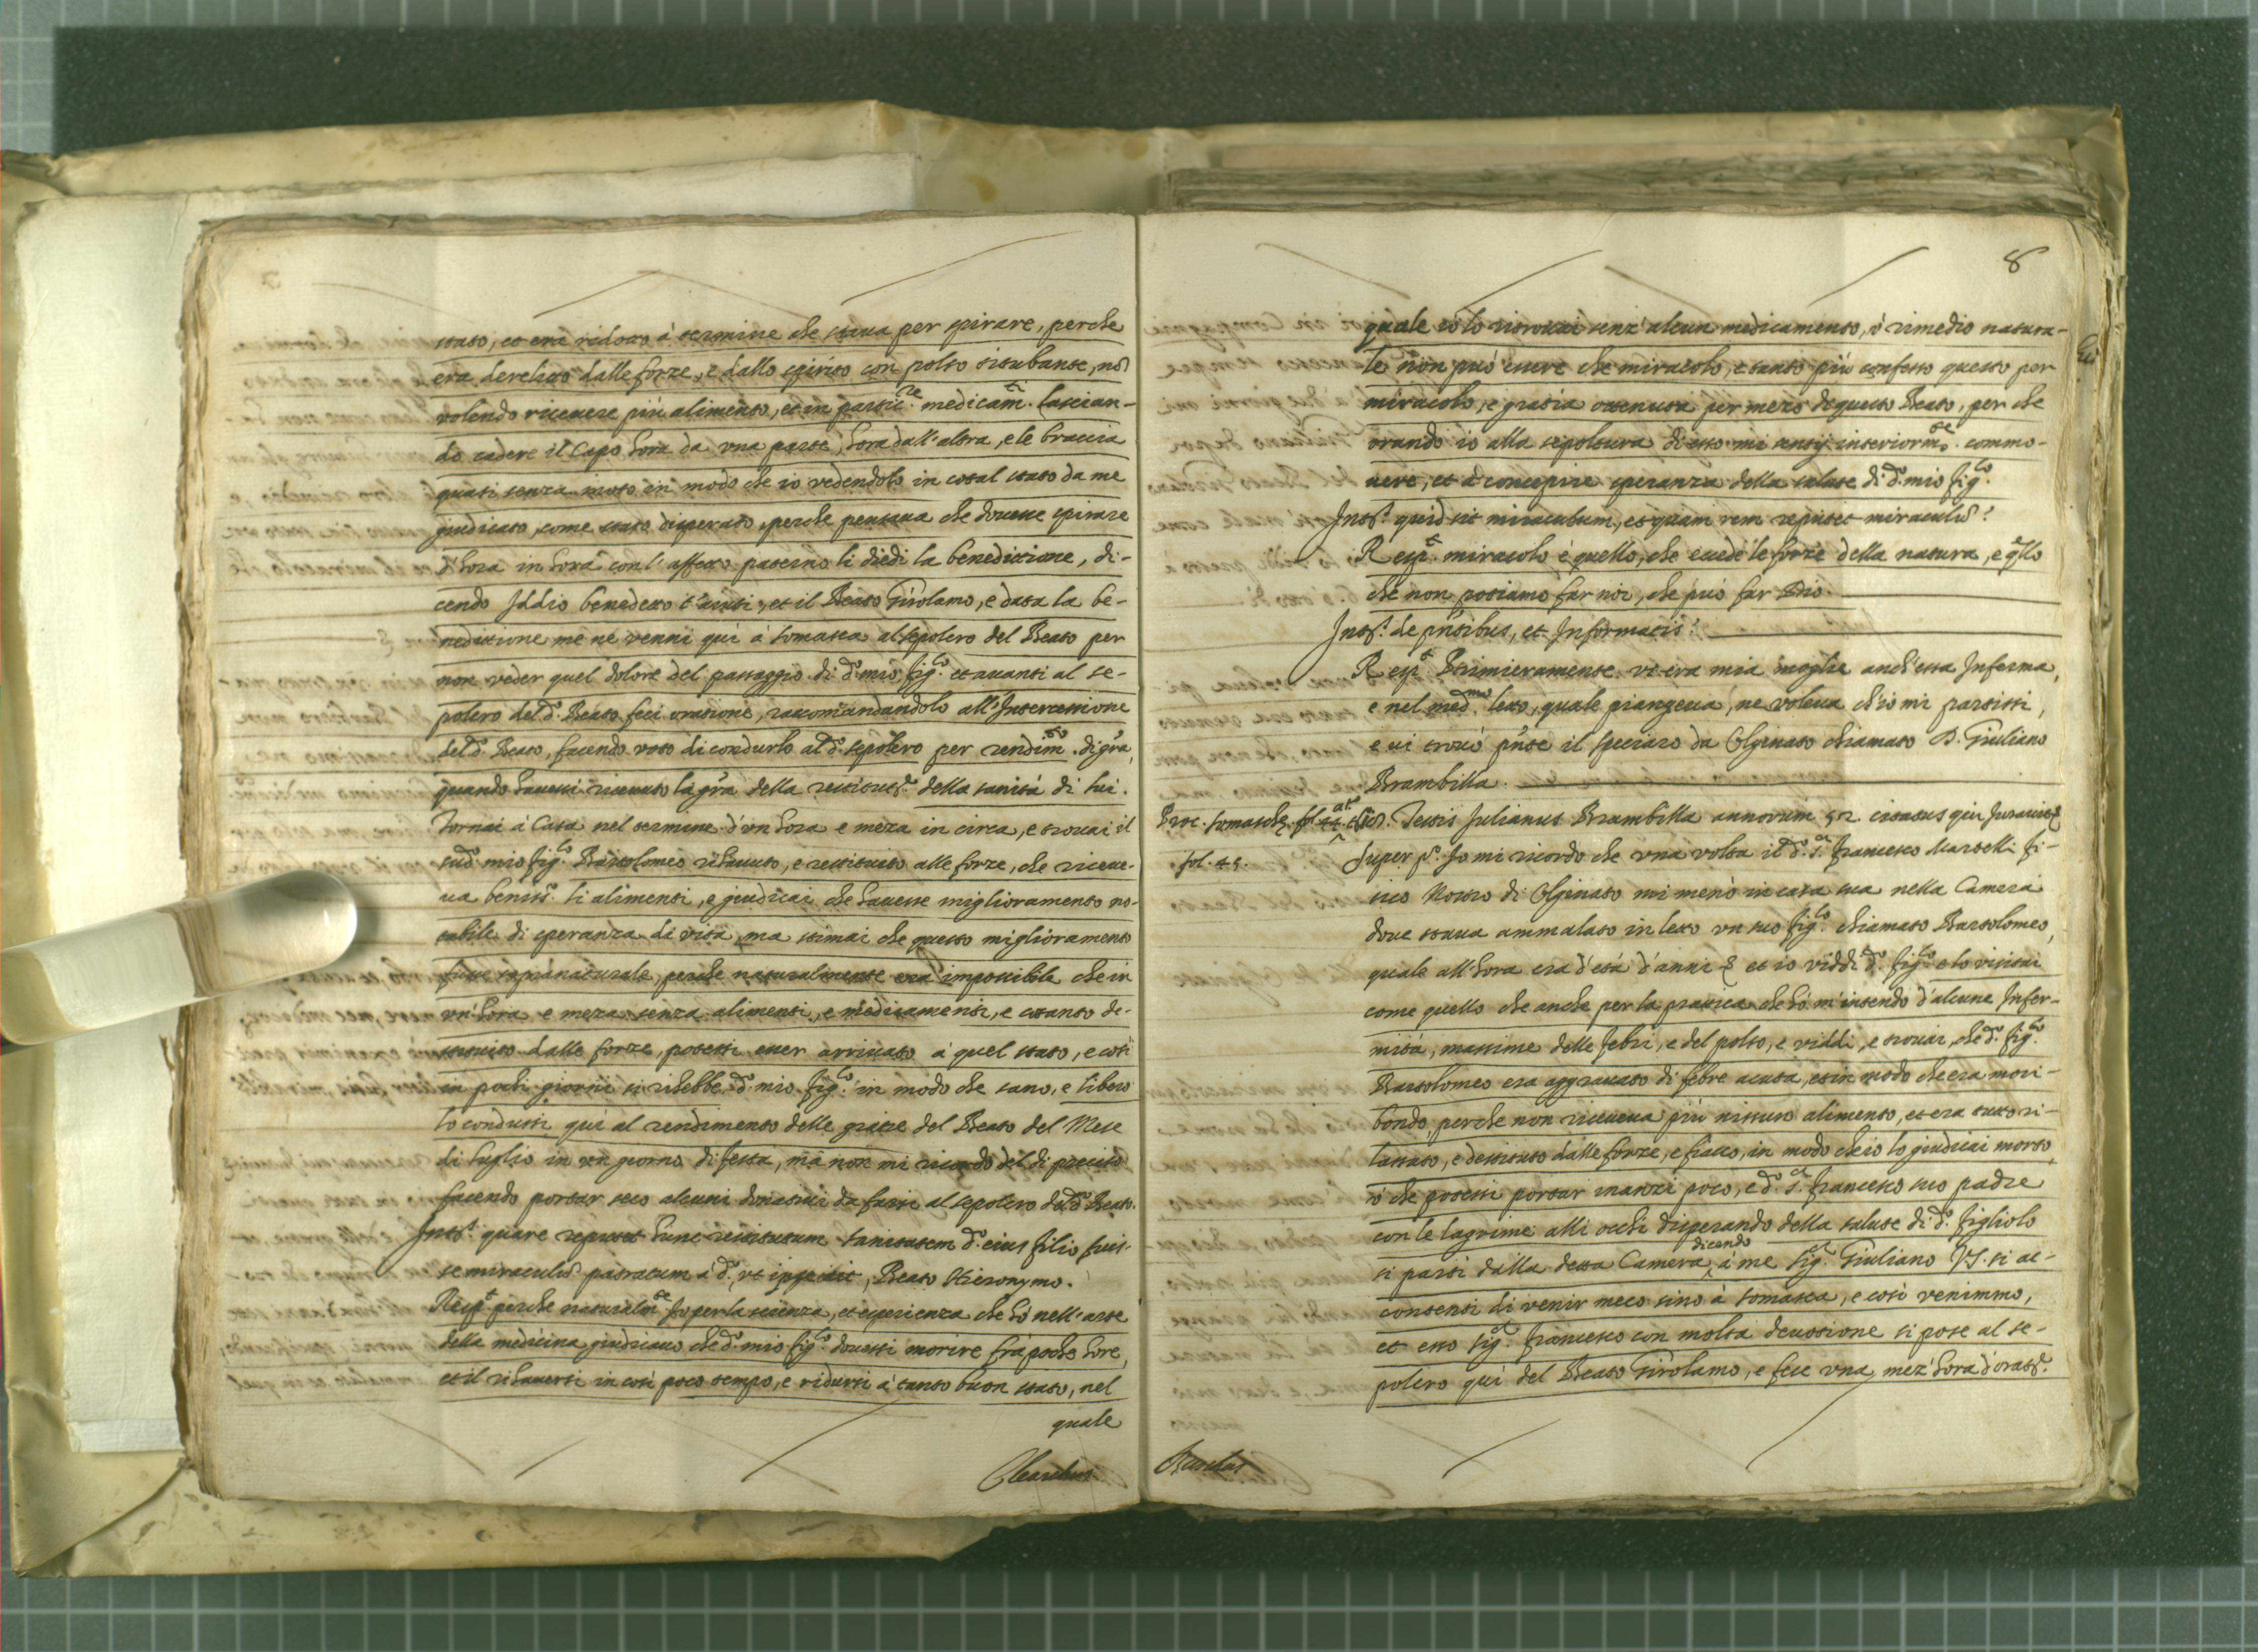 stato, et era ridotto à termine che staua per spirare, perche
era derelitto dalle forze, e dallo spirito con polso titubante, nõ
volendo riceuere più alimento, et in partic.re medicam.ti lascian-
do cadere il Capo hora da vna parte, hora dall'altra, e le braccia
quasi senza moto in modo che io vedendolo in cotal stato da me
giudicato, come stato disperato, perche pensaua che douesse spirare
d'hora in hora con l'affetto paterno li diedi la benedittione, di-
cendo Iddio benedetto t'aiuti, et il Beato Girolamo, e data la be-
nedittione me ne venni qui à Somasca al sepolcro del Beato per
non veder quel dolore del passaggio di d.o mio fig.lo et auanti al se-
polcro del d.o Beato feci oratione, raccomandandolo all'Intercessione
del d.o Beato, facendo voto di condurlo al d.o sepolcro per rendim.to di gr̃a,
quando hauessi riceuuto la gr̃a della restitut.e della sanità di lui.
Tornai à Casa nel termine d'un hora e meza in circa, e trouai il
sud.o mio fig.lo Bartolomeo rihauuto, e restituito alle forze, che riceue-
ua beniss.o li alimenti, e giudicai che hauesse miglioramento no-
tabile di speranza di vita, ma stimai che questo miglioramento
fusse sopranaturale, perche naturalmente era impossibile che in
vn'hora e meza senza alimenti, e medicamenti, e cotanto de-
stituito dalle forze, potessi esser arriuato à quel stato, e così
in pochi giorni si rihebbe d.o mio fig.lo in modo che sano, e libero
lo condussi qui al rendimento delle gratie del Beato del Mese
di luglio in vn giorno di festa, mà non mi ricordo del dì preciso
facendo portar seco alcuni donatiui da farsi al sepolcro del d.o Beato.
Int.s quare reputet hunc restitutum sanitatem d.o eius filio fuis-
se miraculũ patratum à d.o, vt Beato Hieronymo.
Resp.t perche naturalm.te Io per la scienza, et esperienza che hò nell'arte
della medicina giudicauo che d.o mio fig.lo douessi morire frà poche hore,
et il rihauersi in così poco tempo, e ridursi à tanto buon stato, nel
quale
8
quale io lo ritrouai senz'alcun medicamento, ò rimedio natura-
le non può essere che miracolo, e tanto più confesso questo per
miracolo, e gratia ottenuta per mezo di questo Beato, per che
orando io alla sepoltura di esso mi sentij interiorm.te commo-
uere, et à concepire speranza della salute di d.o mio fig.lo
Int.s quid sit miraculum, et quam rem reputet miraculũ?
Resp.t miracolo è quello, che excede le forze della natura, e q̃llo
che non possiamo far noi, che può far Dio.
Int.s de p̃ntibus, et Informatis?
Resp.t Primieramente vi era mia moglie anch'essa Inferma,
e nel med.mo letto, quale piangeua, ne voleua ch'io mi partissi,
e ui trouò p̃nte il speciaro da Olginato chiamato S. Giuliano
Brambilla.
Proc. Somaschę fol. 44. Testis Julianus Brambilla annorum 52 citatus qui Jurauit
fol. 45.
Super p.o Io mi ricordo che vna volta il d.o S.r Francesco Martelli fi-
sico nostro di Olginato mi menò in casa sua nella Camera
doue staua ammalato in letto vn suo fig.lo chiamato Bartolomeo,
quale all'hora era d'età d'anni 8 et io viddi d.o fig.lo e lo visitai
come quello che anche per la prattica che hò m'intendo d'alcune Infer-
mità, massime delle febri, e del polso, e viddi, e trouai, che d.o fig.lo
Bartolomeo era aggrauato di febre acuta, et in modo che era mori-
bondo, perche non riceueua più nissun alimento, et era tutto ri-
lassato, e destituto dalle forze, e fiacco, in modo che io lo giudicai morto,
ò che potessi portar inanzi poco, e d.o S.r Francesco suo padre
con le lagrime alli occhi disperando della salute di d.o figliolo
si partì dalla detta Camera, dicendo à me Sig.r Giuliano VS. si ac-
contenti di venir meco sino à Somasca, e così venimmo,
et esso Sig.r Francesco con molta deuotione si pose al se-
polcro quì del Beato Girolamo, e fece vna mez'hora d'orat.e